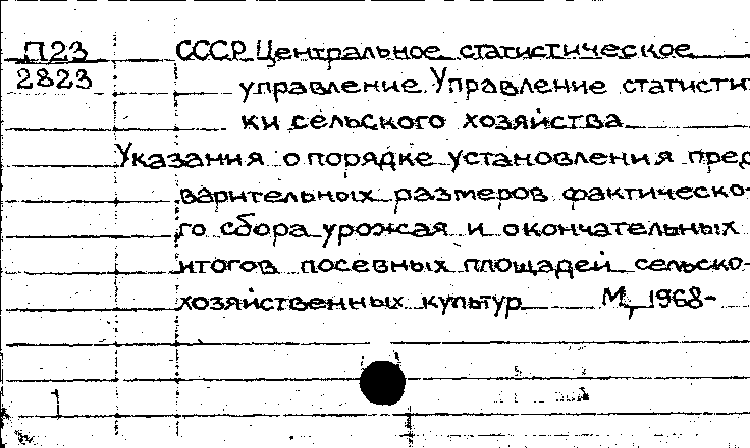 П23 СССР Центральное статистическое
2823 управление Управление статисти-
ки сельского хозяйства
Указания о порядке установления пред
варительных размеров фактическо-
го сбора урожая и окончательных
итогов посевных площадей сельско-
хозяйственных культур М, 1968-
1